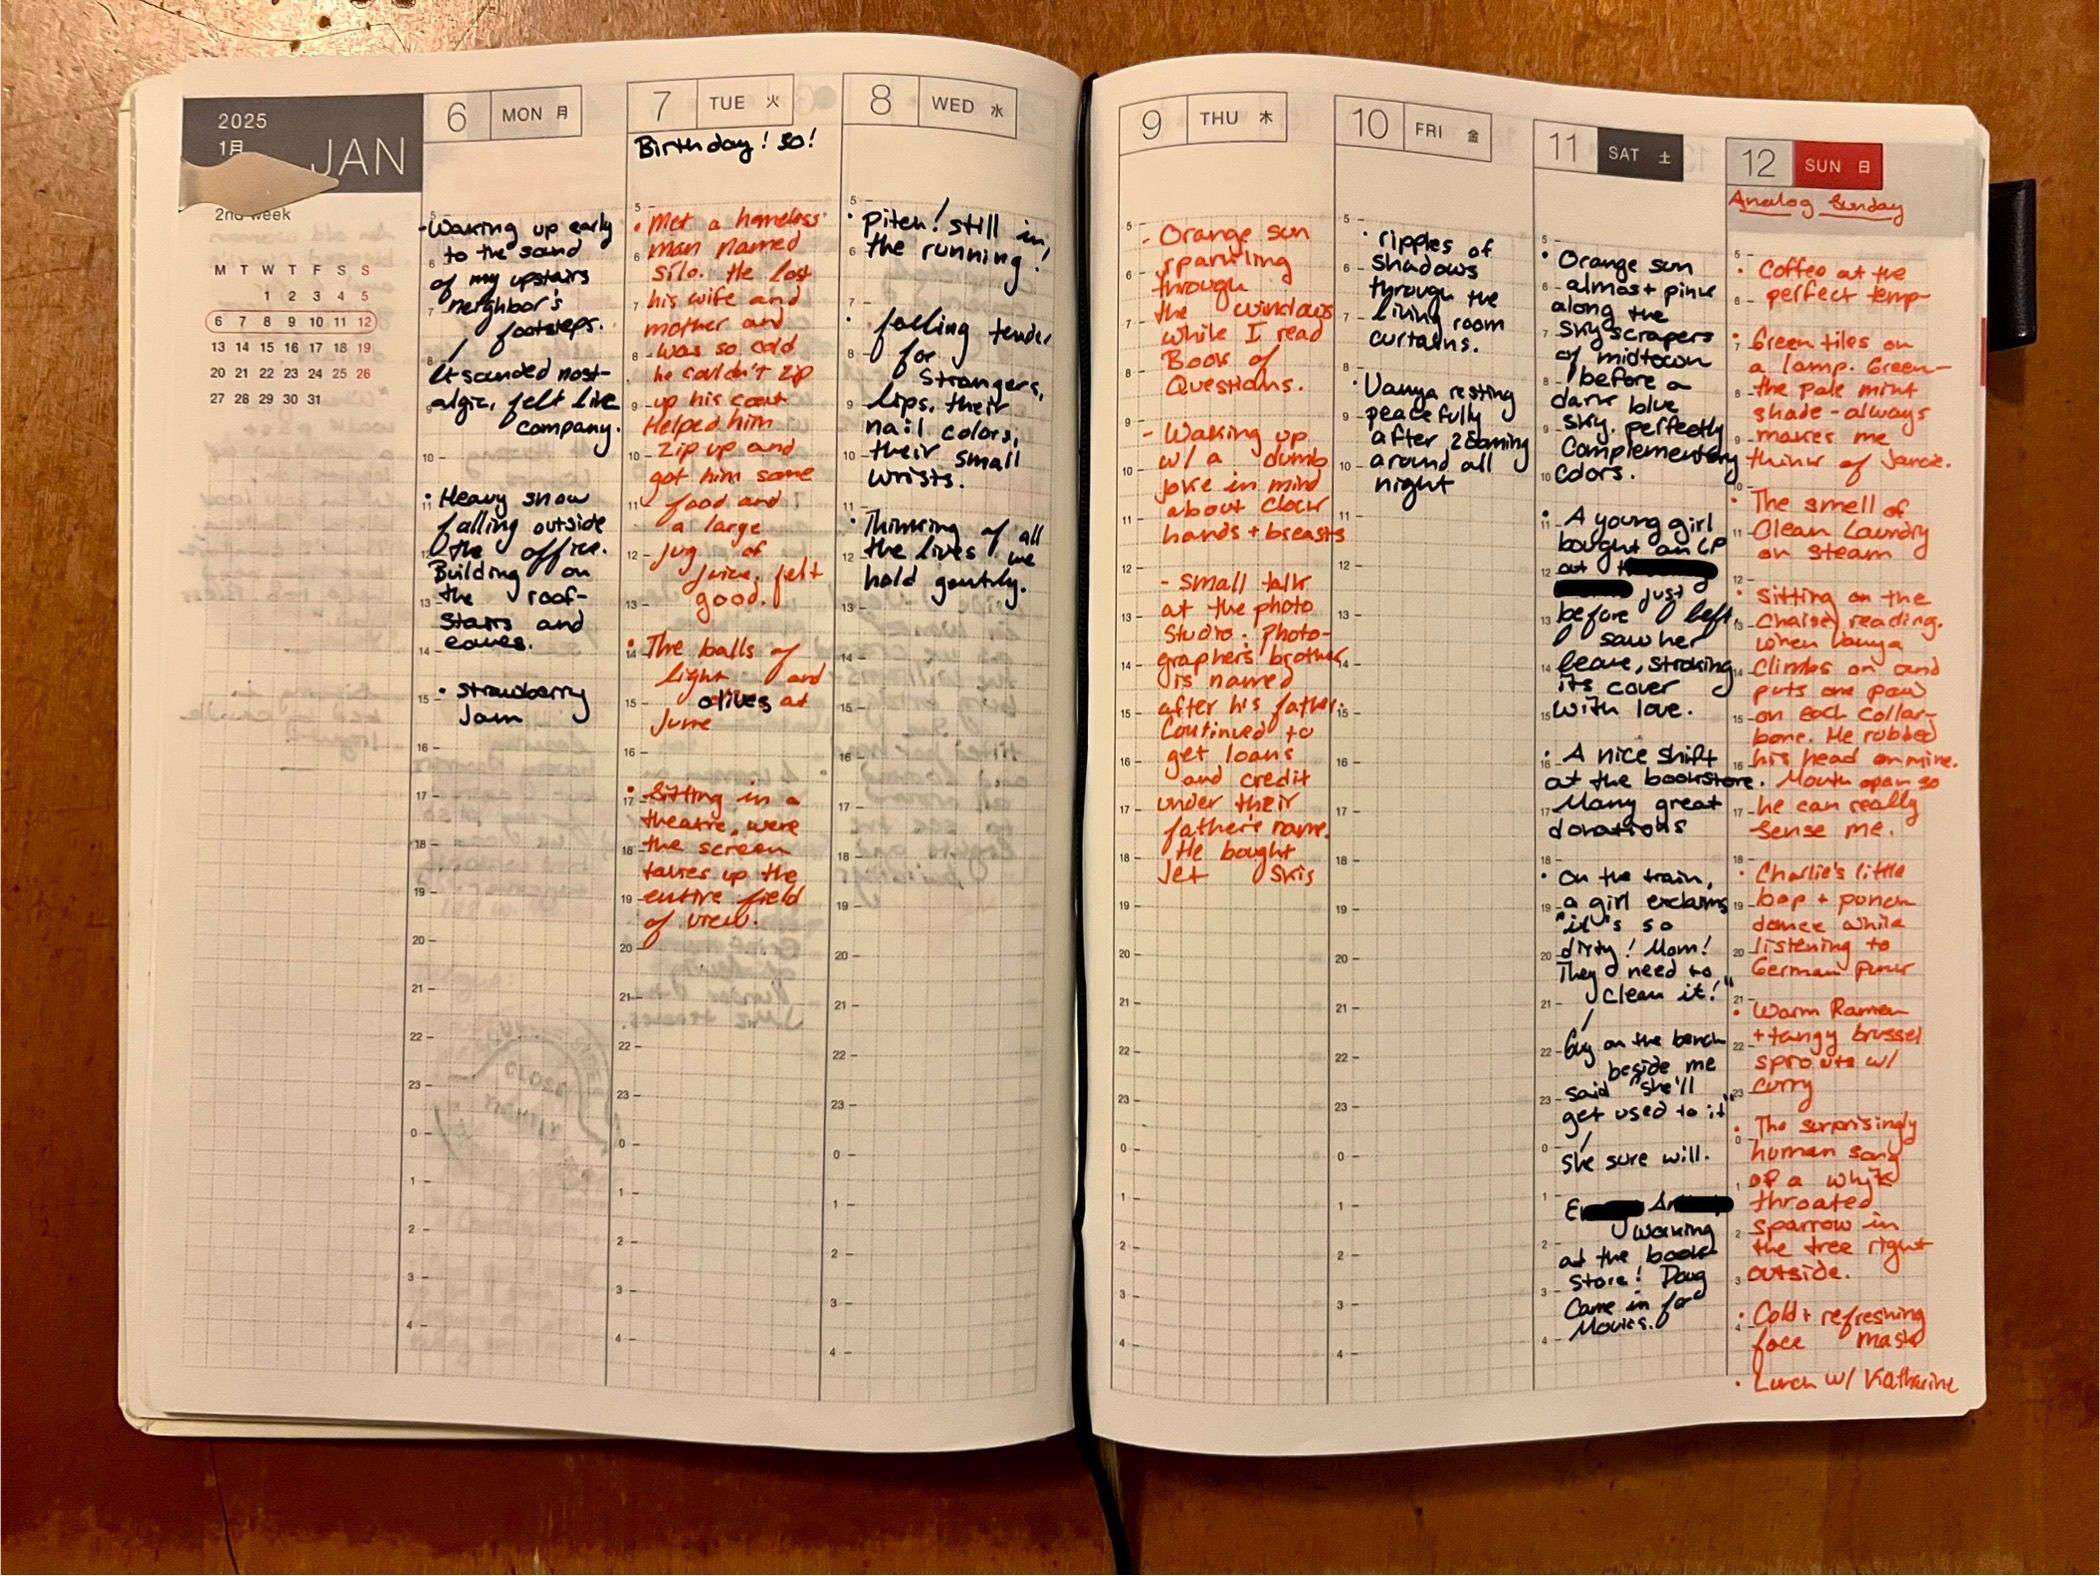 2025
1月
JAN
2nd week
M T W T F S S
1 2 3 4 5
6 7 8 9 10 11 12
13 14 15 16 17 18 19
20 21 22 23 24 25 26
27 28 29 30 31
6 MON 月
- Waking up early
to the sound
of my upstairs
neighbor's
footsteps.
It sounded nost-
algic, felt like
company.
• Heavy snow
falling outside
the office.
Building on
the roof-
Stairs and
eaves.
• strawberry
Jam
7 TUE 火
Birthday! 30!
• Met a homeless
man named
Silo. He lost
his wife and
mother and
was so cold
he couldn't zip
up his coat
Helped him
zip up and
got him some
food and
a large
jug of
juice, felt
good.
• The balls of
light and
olives at
June
• Sitting in a
theatre, were
the screen
takes up the
entire field
of view.
8 WED 水
• Pitch! still in
the running!
• falling tender
for
Strangers,
lips, their
nail colors,
their small
wrists.
• Thinking of all
the lives we
hold gently.
9 THU 木
- Orange sun
sparkling
through
the windows
while I read
Book of
Questions.
- Waking up
w/ a dumb
joke in mind
about clock
hands + breasts
- small talk
at the photo
studio. photo-
grapher's brother
is named
after his father.
Continued to
get loans
and credit
under their
father's name.
He bought
Jet Skis
10 FRI 金
• ripples of
shadows
through the
living room
curtains.
• Vanya resting
peacefully
after zooming
around all
night
11 SAT 土
• Orange sun
almost pink
along the
sky scrapers
of midtown
before a
dark blue
sky. perfectly
Complementary
colors.
• A young girl
bought an LP
out
just
before I left
I saw her
leave, stroking
its cover
with love.
• A nice shift
at the bookstore.
Many great
donations
• On the train,
a girl exclaims
"it's so
dirty! Mom!
They need to
clean it!"
Guy on the bench
beside me
said "she'll
get used to it"
She sure will.
working
at the book
store! Doug
Came in for
Movies.
12 SUN 日
Analog Sunday
• Coffee at the
perfect temp-
• Green tiles on
a lamp. Green-
the pale mint
shade - always
makes me
think of Janie.
• The smell of
Clean Laundry
on steam
• Sitting on the
Chaise, reading.
When Vanya
Climbs on and
puts one paw
on each collar-
bone. He rubbed
his head on mine.
Mouth open so
he can really
sense me.
• Charlie's little
bop + punch
dance while
listening to
German punk
• Warm Ramen
+ tangy brussel
sprouts w/
curry
• The surprisingly
human song
of a white
throated
sparrow in
the tree right
outside.
• Cold + refreshing
face mask
• Lunch w/ Katharine